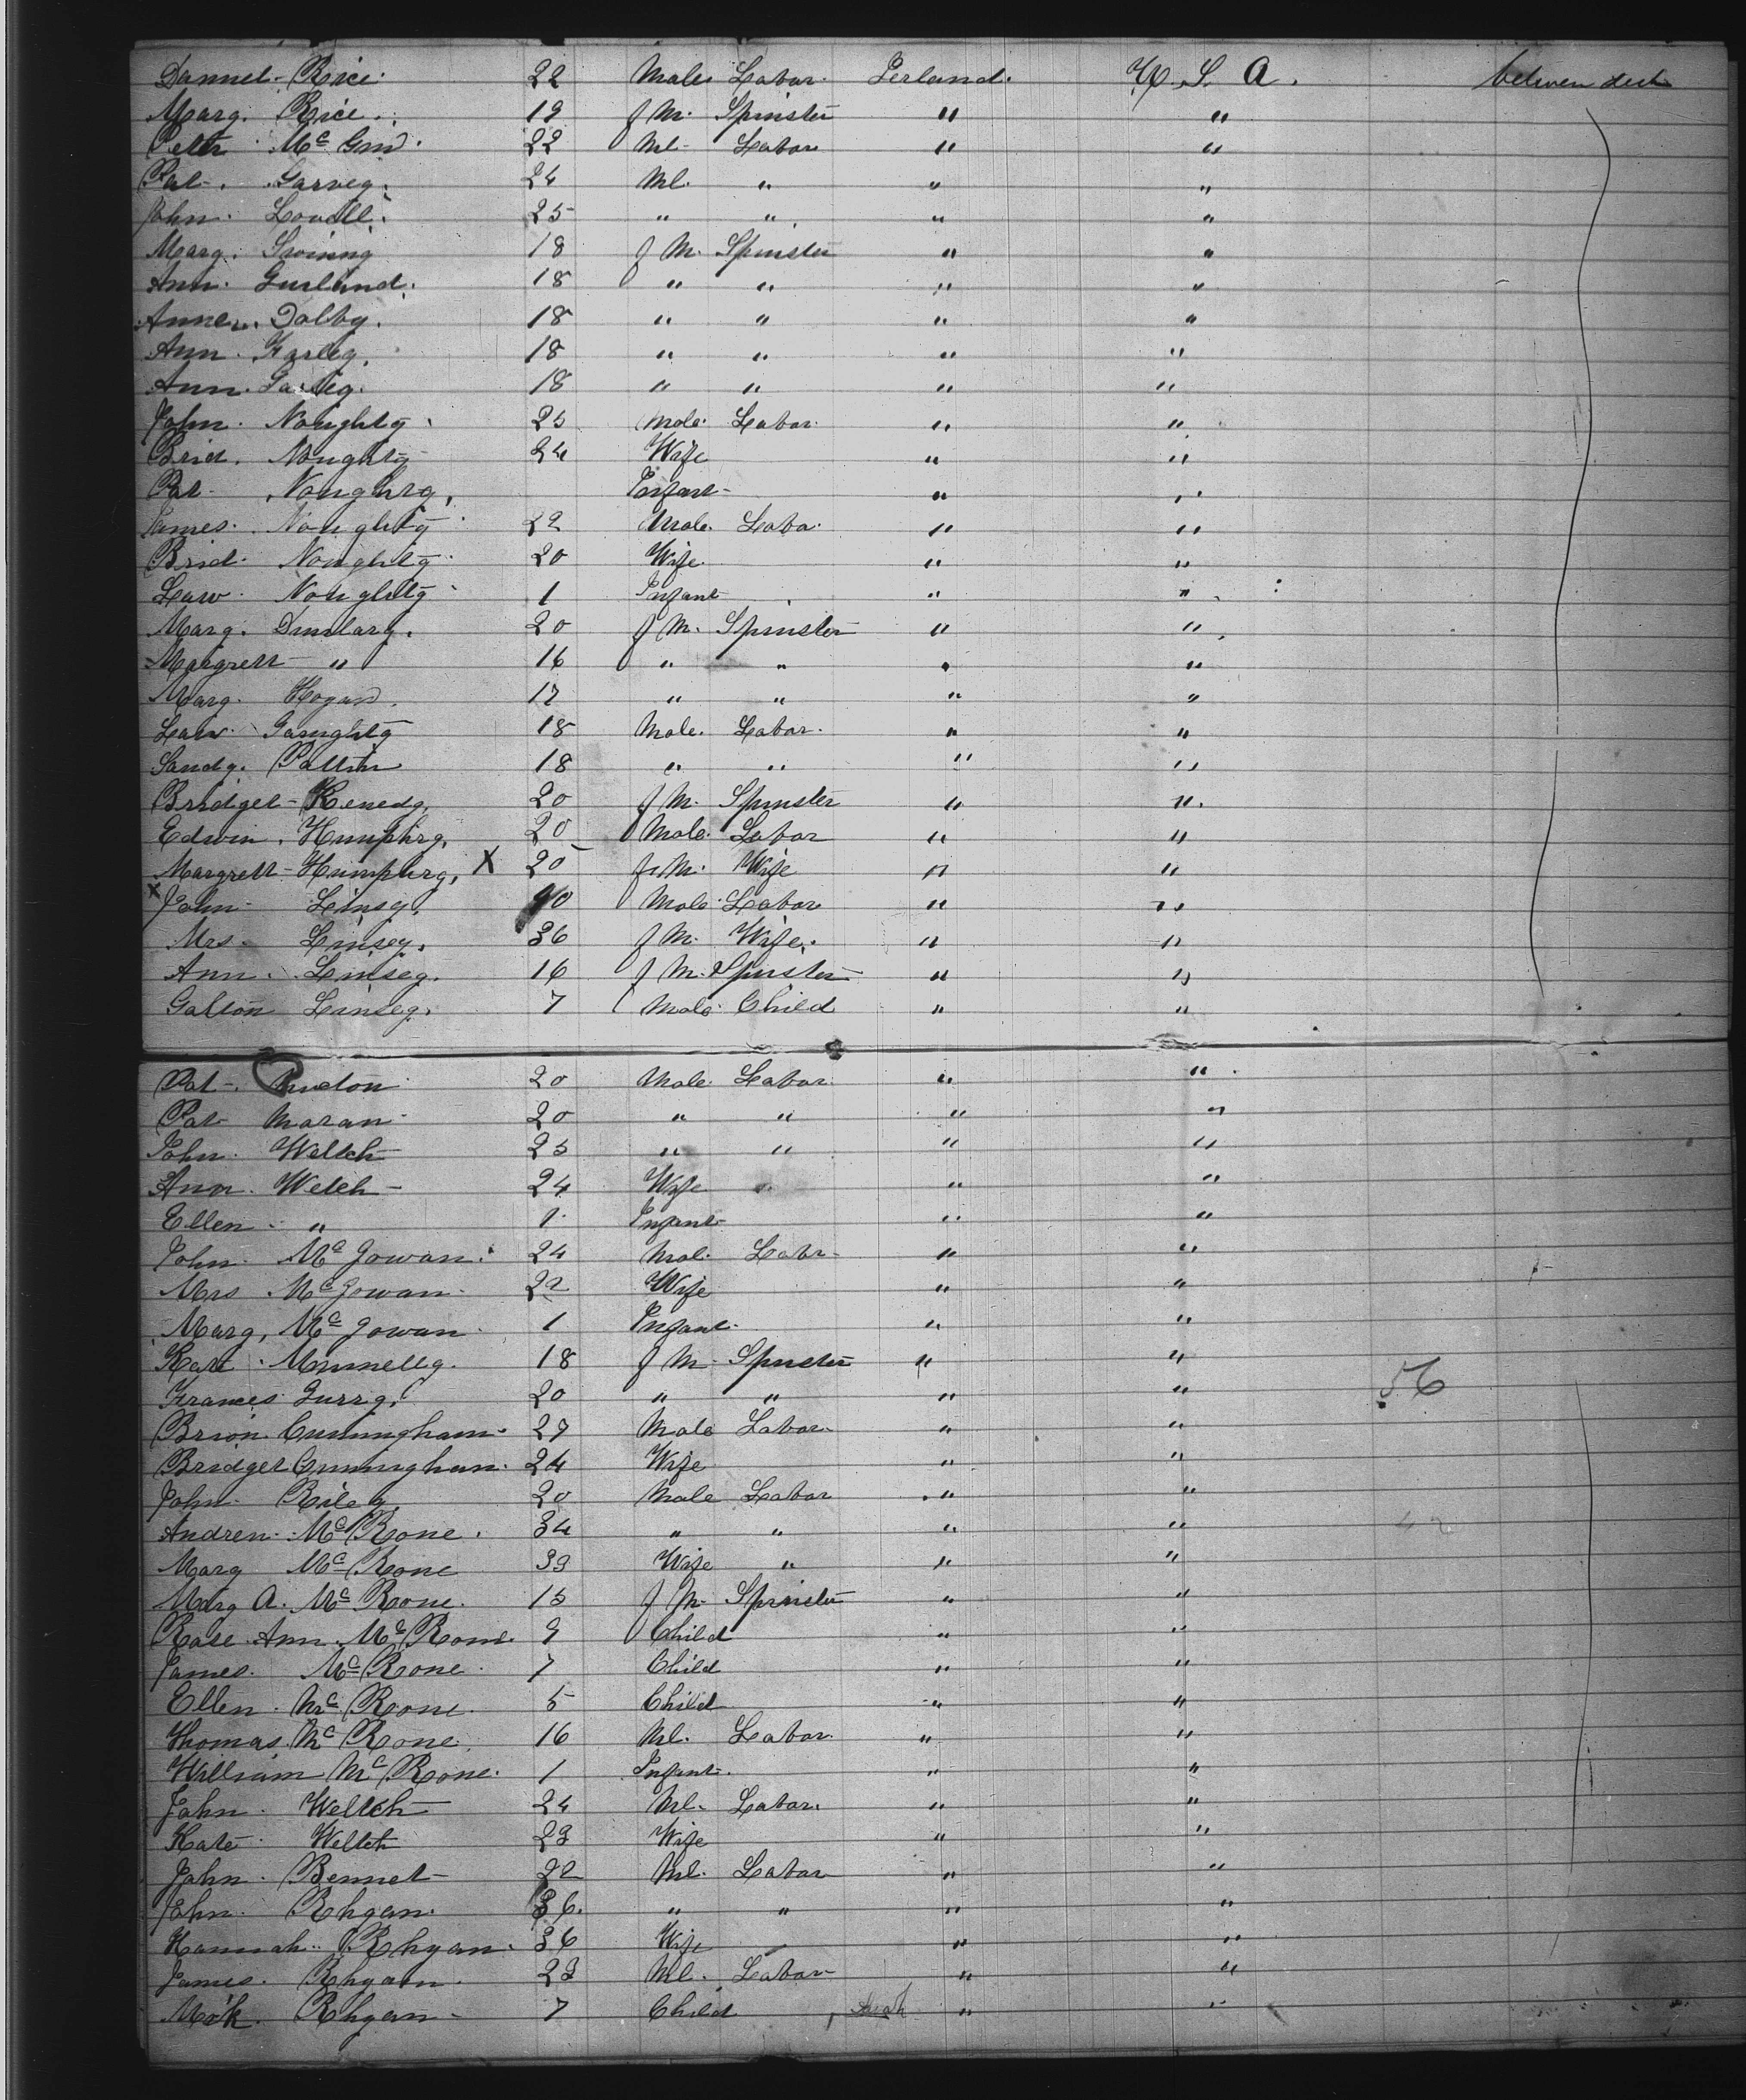 Dannel Rice 22 Male Labor Ierland. U. S. A. betwen deck
Marg. Rice 19 f M. Spinster " "
Peter Mc 22 Ml Labor " "
Pat. Garvey. 24 Ml. " " "
John. Lovell. 25 " " " "
Marg. 18 f M. Spinster " "
Ann. Gurland. 18 " " " "
Anne Dolby. 18 " " " "
Ann. Farley. 18 " " " "
Ann. 18 " " " "
John. Noughty. 25 Male Labor. " "
Brid. Noughty 24 Wife " "
Pat. Noughty, Infant " "
James. Noughty 22 Male. Labo. " "
Brid. Noughty 20 Wife. " "
Law. Noughty 1 Infant " "
Marg. 20 f M. Spinster " "
Margrett " 16 " " " "
Marg. Hogan. 17 " " " "
Law. 18 Male. Labor. " "
Sandy. Pattin 18 " " " "
Bridget Kenedy. 20 f M. Spinster " "
Edwin. Humphry. 20 Male. Labor " "
Margrett Humphry, X 20 f M. Wife " "
X John Linsey. 40 Male Labor " "
Mrs. Linsey. 36 f M. Wife. " "
Ann. Linsey. 16 f M. Spinster " "
Galton Linsey. 7 Male Child " "
Pat. 20 Male. Labor. " "
Pat Moran 20 " " " "
John. Weltch 25 " " " "
Ann. Welch 24 Wife " "
Ellen " 1 Infant " "
John. Mc Gowan. 24 Mal. Labr. " "
Mrs Mc Gowan. 22 Wife " "
Marg, Mc Gowan. 1 Infant. " "
Kate 18 f M Spinster " "
Frances 20 " " " " 56
Brion. Cuningham. 27 Male Labor. " "
Bridget Cuningham. 24 Wife " "
John. Riley. 20 Male Labor " "
Andren. Mc Rone. 34 " " " "
Marg Mc Rone 33 Wife " " "
Marg A. Mc Rone. 15 f M. Spinster " "
Rose Ann. Mc Rone. 9 Child " "
James. Mc Rone. 7 Child " "
Ellen. Mc Rone. 5 Child " "
Thomas. Mc Rone. 16 Ml. Labor. " "
William Mc Rone. 1 Infant. " "
John. Weltch 24 Ml. Labor. " "
Kate Weltch 23 Wife " "
John. Bennet 22 Ml. Labor " "
John. Rhgan. 36. " " " "
Hannah. Rhgan. 36 Wife " "
James. Rhgan. 23 Ml. Labor " "
Rhgan 7 Child " "